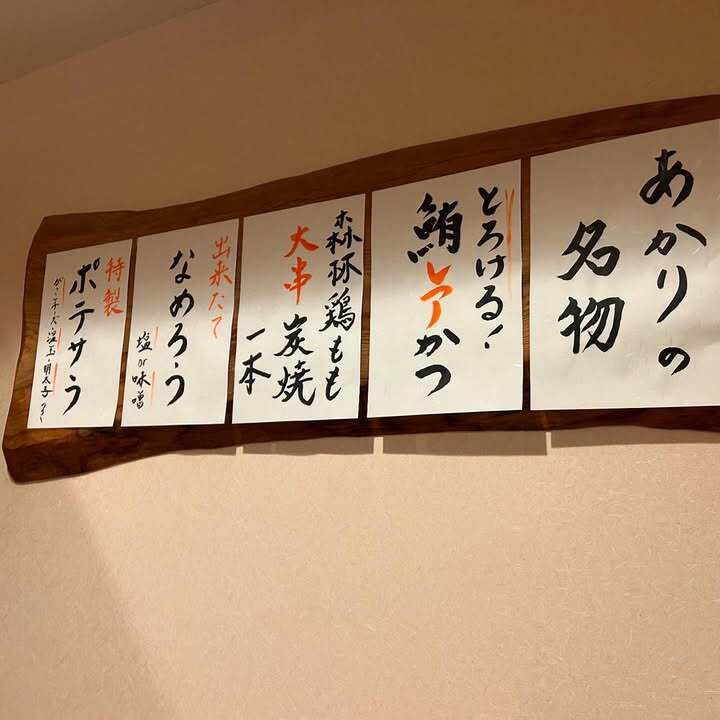 あかりの
名物
とろける!
鮪レアかつ
森林鶏もも
大串炭焼
一本
出来たて
なめろう
塩or味噌
特製
ポテサラ
温玉・明太子